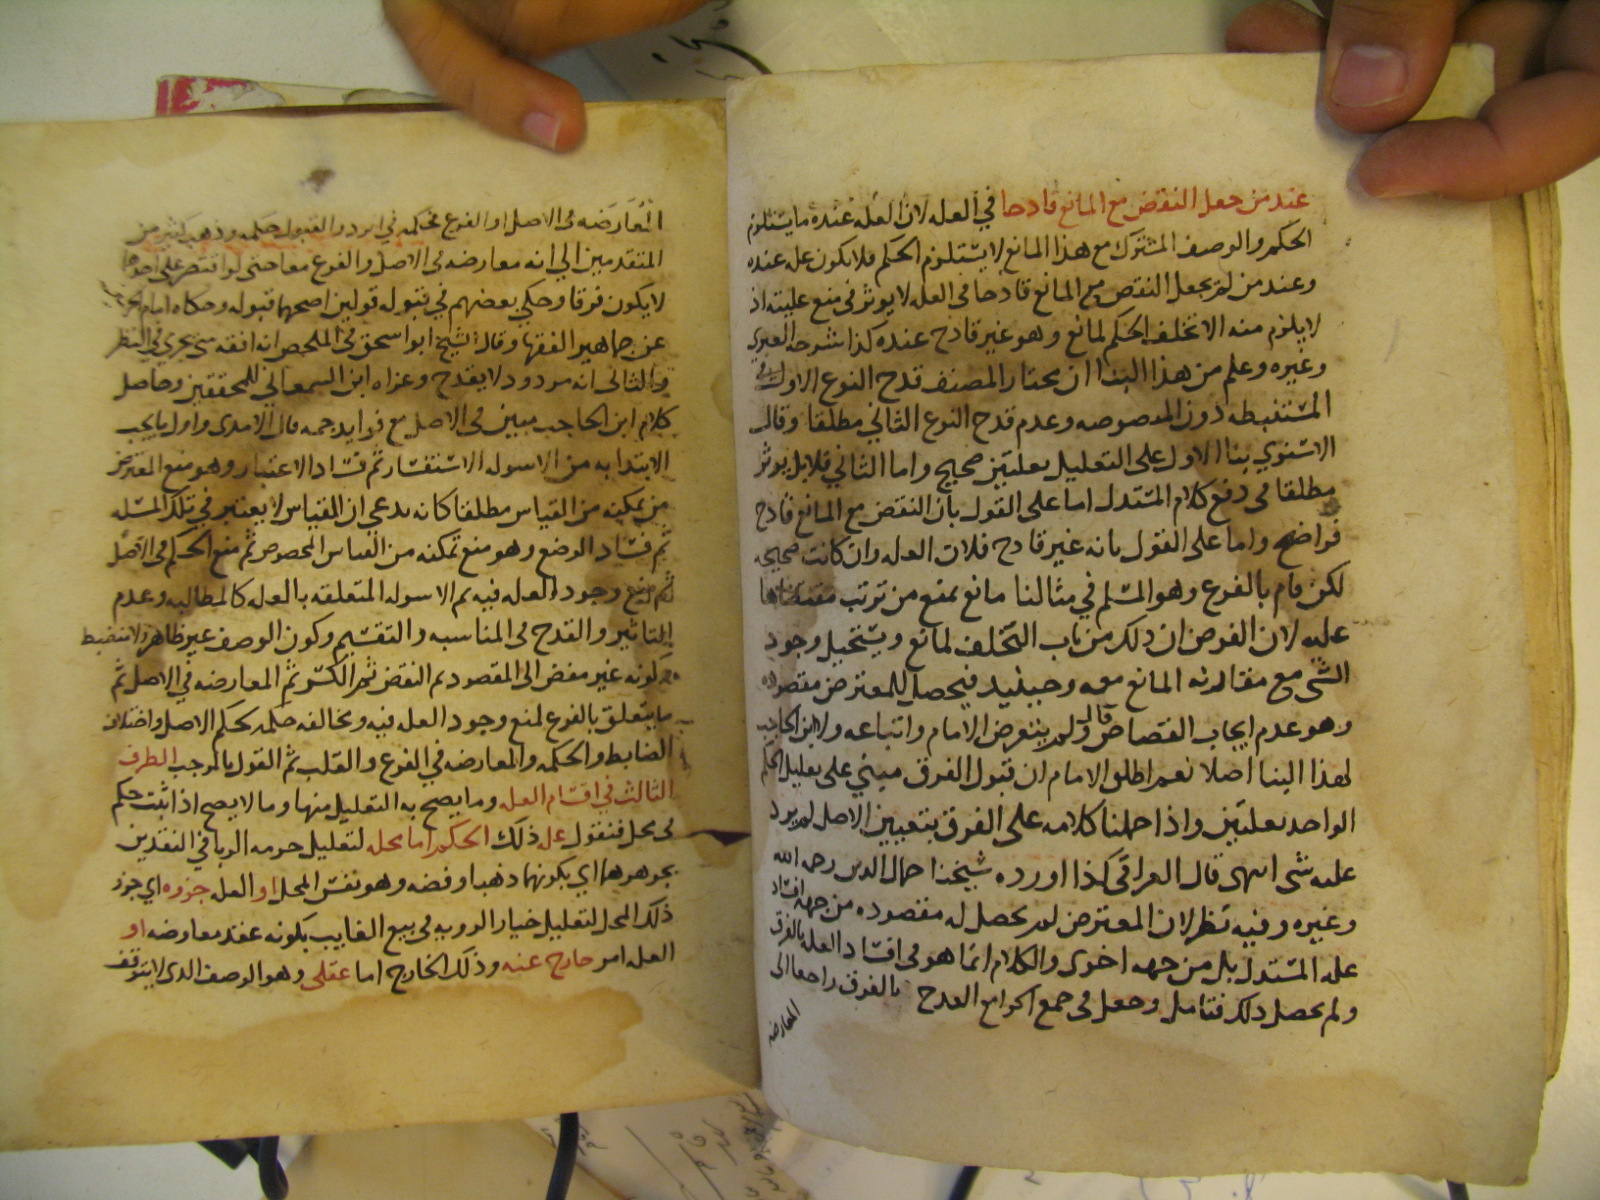 عند من جعل النقض مع المانع قادحا في العله لان العله عنده ما يستلزم
الحكم والوصف المشترك مع هذا المانع لا يستلزم الحكم فلا يكون عله عنده
وعند من لم يجعل النقض مع المانع قادحا في العله لا يوثر في منع عليته اذ
لا يلزم منه الا تخلف الحكم لمانع وهو غير قادح عنده كذا شرحه العبري
وغيره وعلم من هذا البنا ان مختار المصنف قدح النوع الاول في
المستنبطه دون المنصوصه وعدم قدح النوع الثاني مطلقا وقال
الاسنوي بنا الاول على التعليل بعلتين صحيح واما الثاني فلا بل يوثر
مطلقا في دفع كلام المستدل اما على القول بان النقض مع المانع قادح
فواضح واما على القول بانه غير قادح فلان العله وان كانت صحيحه
لكن قام بالفرع وهو المسلم في مثالنا مانع يمنع من ترتب مقتضاها
عليه لان الفرض ان ذلك من باب التخلف لمانع ويستحيل وجود
الشي مع مقارنه المانع معه وحينيد فيحصل للمعترض مقصوده
وهو عدم ايجاب القصاص قال ولم يتعرض الامام واتباعه ولا ابن الحاجب
لهذا البنا اصلا نعم اطلق الامام ان قبول الفرق مبني على تعليل الحكم
الواحد بعلتين واذا حملنا كلامه على الفرق بتعيين الاصل لم يرد
عليه شي انتهى قال العراقي كذا اورده شيخنا جمال الدين رحمه الله
وغيره وفيه نظر لان المعترض لم يحصل له مقصوده من جهه افساد
عله المستدل بل من جهه اخرى والكلام انما هو في افساد العله بالفرق
ولم يحصل ذلك فتامل وجعل في جمع الجوامع القدح بالفرق راجعا الى
المعارضه
المعارضه في الاصل او الفرع فحكمه في الرد والقبول حكمه وذهب كثير من
المتقدمين الى انه معارضه في الاصل والفرع معا حتى لو اقتصر على احدهما
لا يكون فرقا وحكي بعضهم في قبوله قولين اصحهما قبوله وحكاه امام الحرمين
عن جماهير الفقها وقال الشيخ ابو اسحق في الملخص انه افقه شي يجري في النظر
والثاني انه مردود لا يقدح وعزاه ابن السمعاني للمحققين وحاصل
كلام ابن الحاجب مبين في الاصل مع فوايد جمه قال الامدي واول ما يجب
الابتدا به من الاسوله الاستفسار ثم فساد الاعتبار وهو منع المعترض
من تمكينه من القياس مطلقا كانه يدعي ان القياس لا يعتبر في تلك المسله
ثم فساد الوضع وهو منع تمكنه من القياس المخصوص ثم منع الحكم في الاصل
ثم منع وجود العله فيه ثم الاسوله المتعلقه بالعله كالمطالبه وعدم
التاثير والقدح في المناسبه والتقسيم وكون الوصف غير ظاهر ولا منضبط
وكونه غير مفض الى المقصود ثم النقض ثم الكسر ثم المعارضه في الاصل ثم
ما يتعلق بالفرع لمنع وجود العله فيه ومخالفه حكمه بحكم الاصل واختلاف
الضابط والحكمه والمعارضه في الفرع والقلب ثم القول بالموجب الطرف
الثالث في اقسام العله وما يصح به التعليل منها وما لا يصح اذا ثبت حكم
في محل فنقول عله ذلك الحكم اما محله لتعليل حرمه الربا في النقدين
بجوهرهما اي بكونهما ذهبا وفضه وهو نفس المحل او العله جزوه اي جزو
ذلك المحل لتعليل خيار الرويه في بيع الغايب بكونه عقد معاوضه او
العله امر خارج عنه وذلك الخارج اما عقلي وهو الوصف الذي لا يتوقف